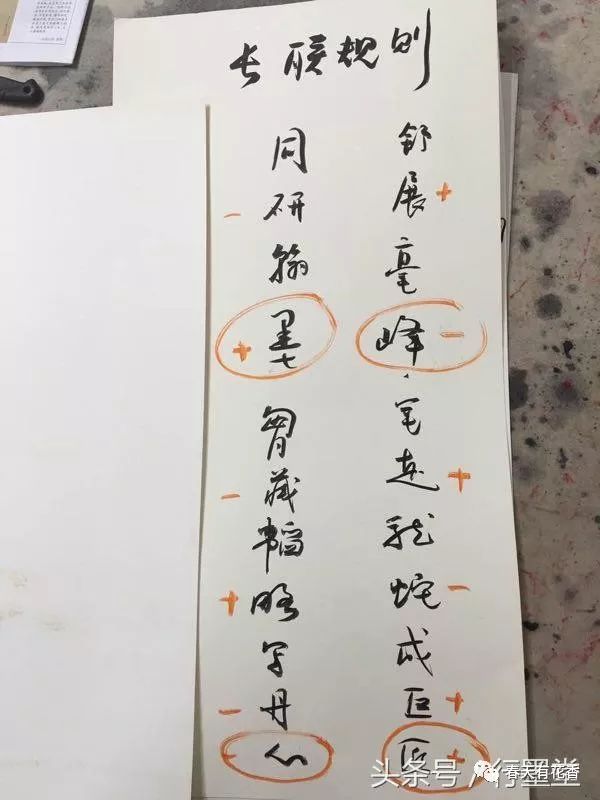 长联规则
舒展毫峰·笔走龙蛇成巨匠
同研翰墨胸藏韬略写丹心
头条号/行墨堂
春天有花香